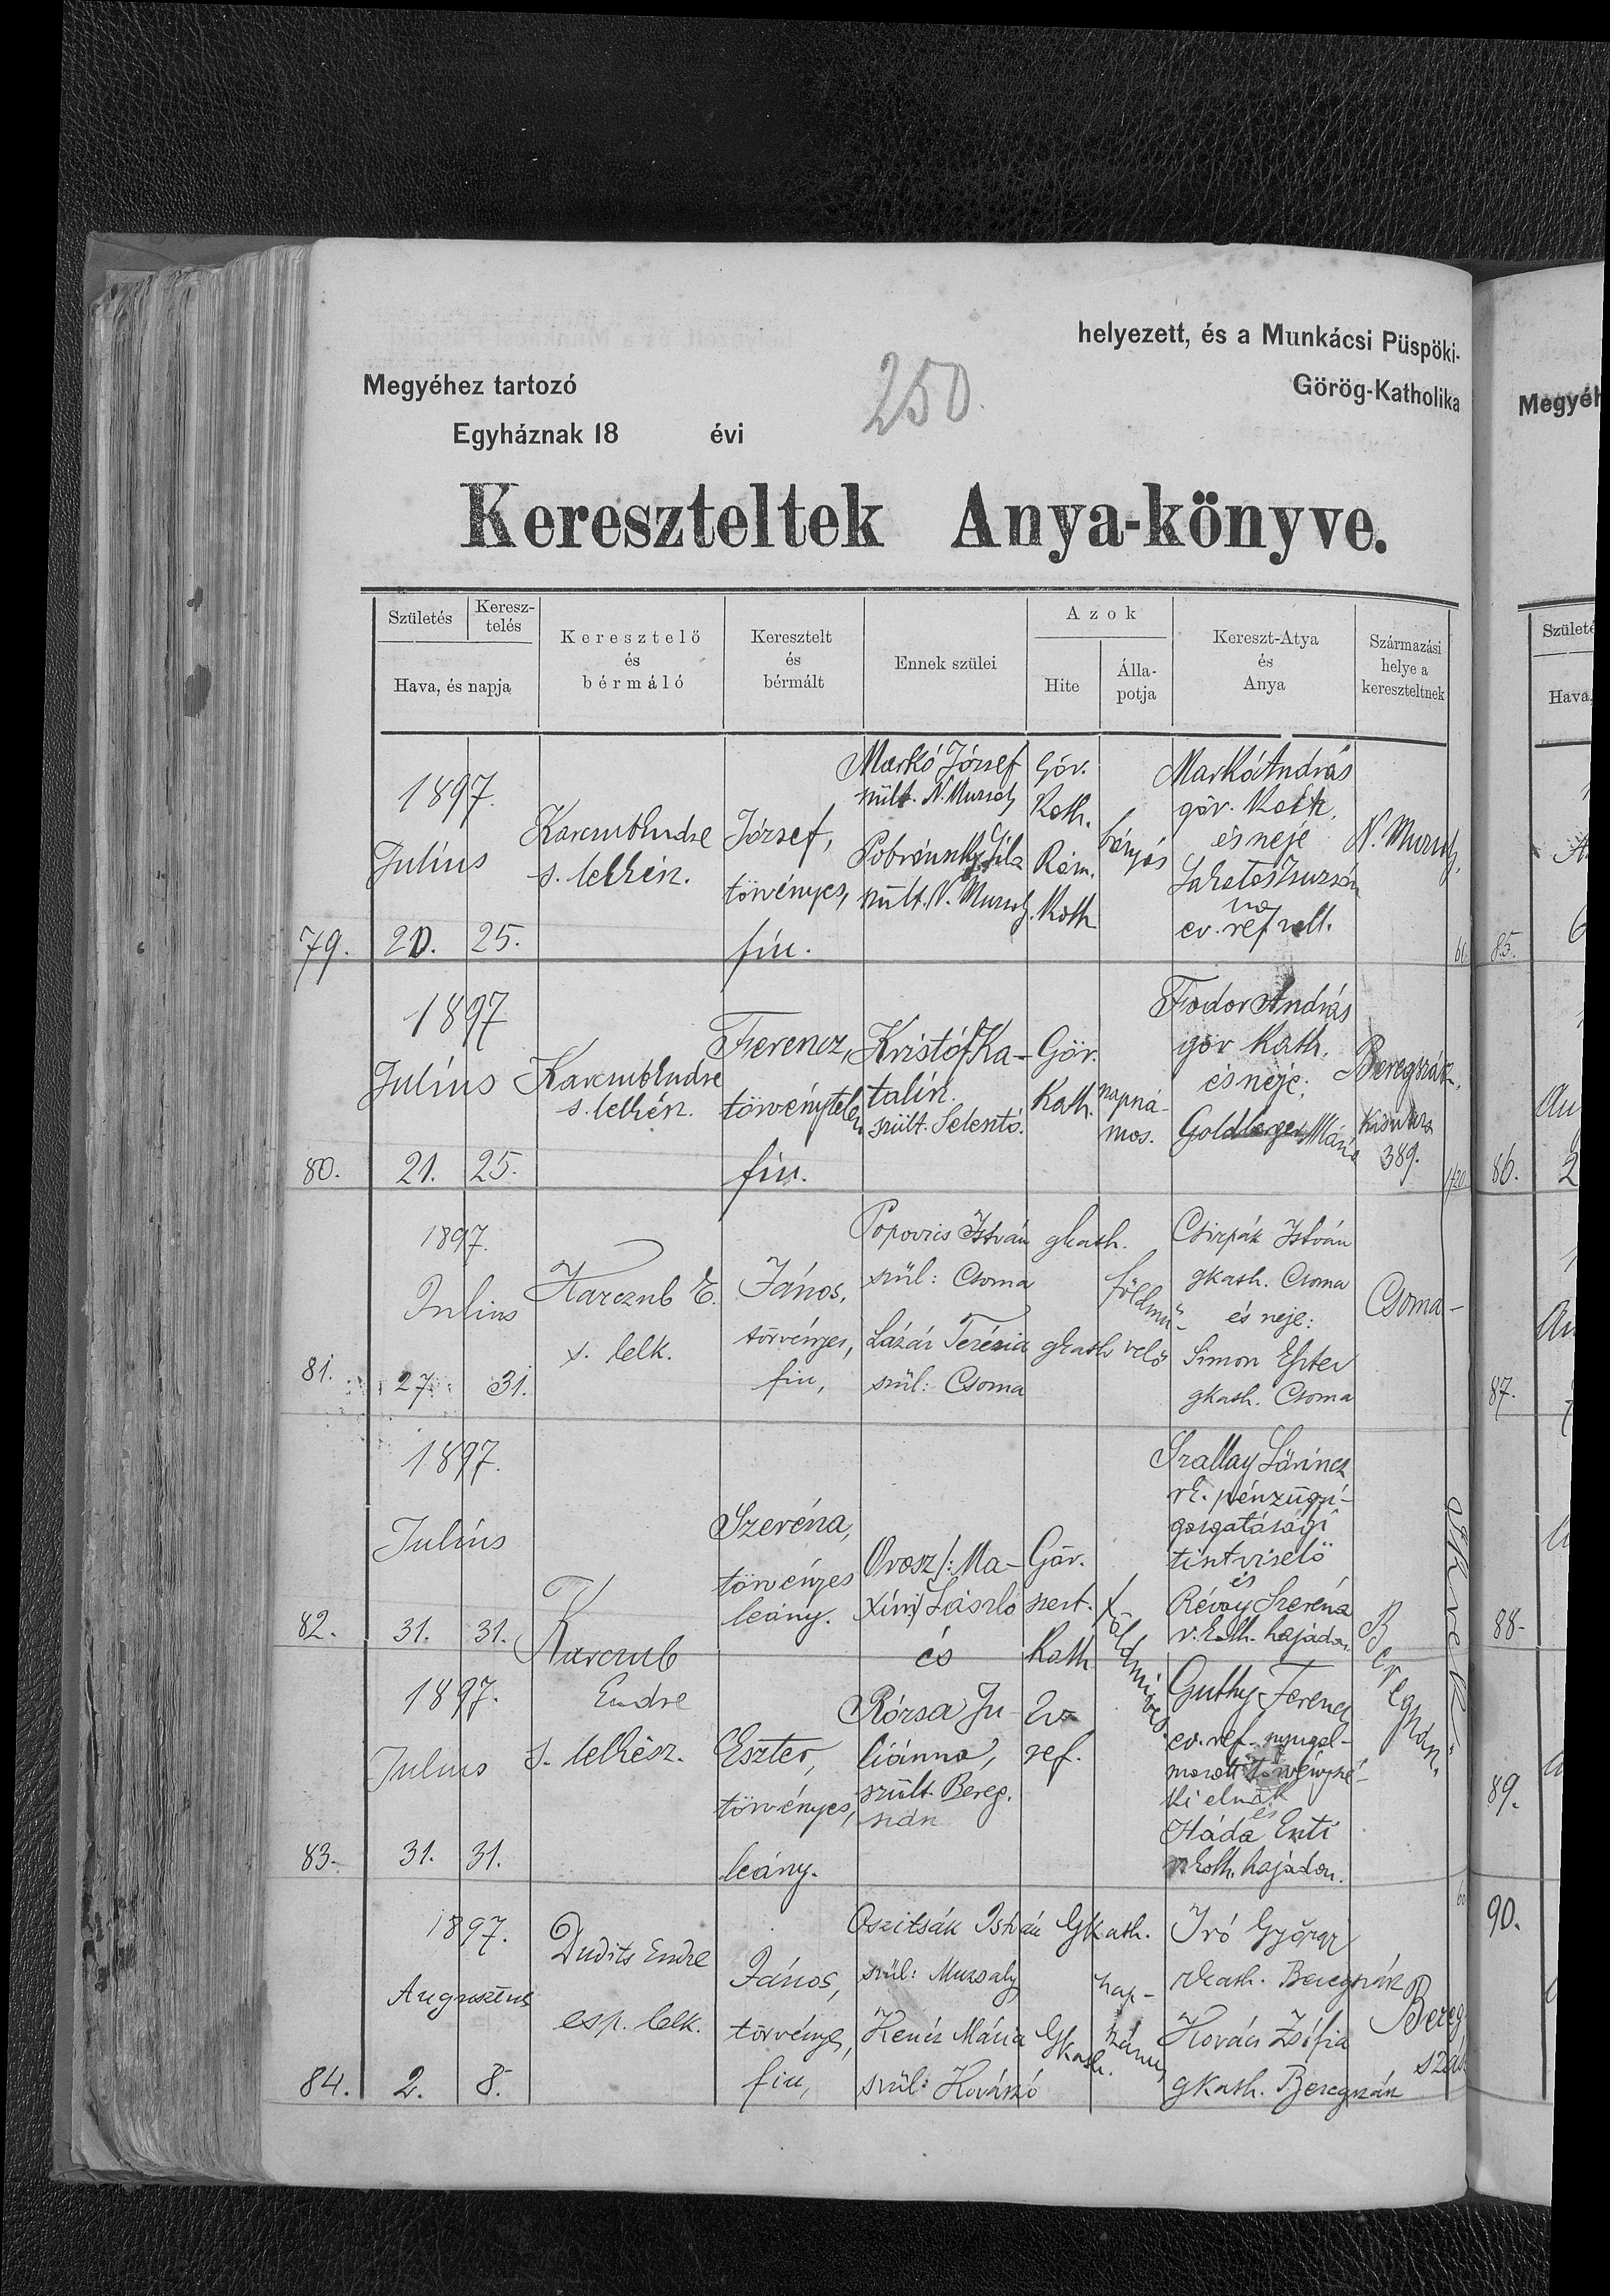 helyezett, és a Munkácsi Püspöki-
Megyéhez tartozó
Görög-Katholika
250.
Egyháznak 18 évi
Kereszteltek Anya-könyve.
Születés
Keresz-
telés
Hava, és napja
Keresztelő
és
bérmáló
Keresztelt
és
bérmált
Ennek szülei
Azok
Hite
Álla-
potja
Kereszt-Atya
és
Anya
Származási
helye a
kereszteltnek
79.
1897.
Július
20. 25.
Karczub Endre
s. lelkész.
József,
törvényes,
fiu.
Markó József
szült. N. Muzsaly
szült. N. Muzsaly.
Gör.
Kath.
Róm.
Kath
Markó András
gör. Kath.
és neje
Lakatos Zsuzsán
na
ev. ref vall.
N. Muzsaly.
80.
1897
Július
21. 25.
Karczub Endre
s. lelkész.
Ferencz,
törvénytelen
fiu.
Kristóf Ka-
talin.
szült. Selentő.
Gör.
Kath.
napszá-
mos.
Fodor András
gör Kath.
és neje:
Goldberger Mária
Beregszász.
389.
81.
1897.
Julius
27. 31.
Karczub E.
s. lelk.
János,
törvényes,
fiu,
Popovics István
szül: Csoma
Lázár Terézia
szül: Csoma
gkath.
gkath
földmű-
velő
Csirpák István
gkath. Csoma
és neje:
Simon Eszter
gkath. Csoma
Csoma-
82.
1897.
Július
31. 31.
Szeréna,
törvényes
leány.
Orosz /: Ma-
xim/ László
és
Gör.
szert.
Kath
Szallay Lőrincz
rk. pénzügyi-
gazgatósági
tisztviselő
és
Révay Szeréna
r. kath. hajadon
83.
1897.
Julius
31. 31.
Karczub
Endre
s. lelkész.
Eszter,
törvényes,
leány.
Rózsa Ju-
liánna,
szült. Bereg.
szász
Ev.
ref.
földmíves.
Guthy Ferencz
ev. ref. nyugal-
mazott törvényszé-
ki elnök
és
Háda Eszti
r. kath. hajadon.
Beregszász.
Ikrek.
84.
1897.
Augusztus
2. 8.
Dudits Endre
esp. lelk.
János,
törvénys,
fiu,
Oszitsák István
szül: Muzsaly
Kenéz Mária
szül: Kovászó
Gkath.
Gkath.
nap-
számos
Iró György
rkath. Beregszász
Kovács Zsófia
gkath. Beregszász
Bereg-
szász
Megyéh
Születé
Hava,
85.
86.
87.
88-
89.
90.